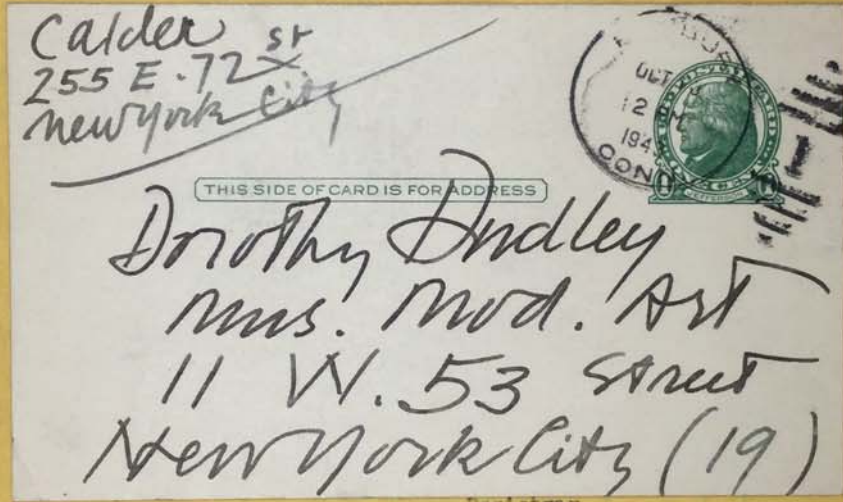 Calder
255 E. 72 St
New York City
OCT
12 M
194
CONN
THIS SIDE OF CARD IS FOR ADDRESS
JEFFERSON
Dorothy Dudley
Mus. Mod. Art
11 W. 53 Street
New York City (19)